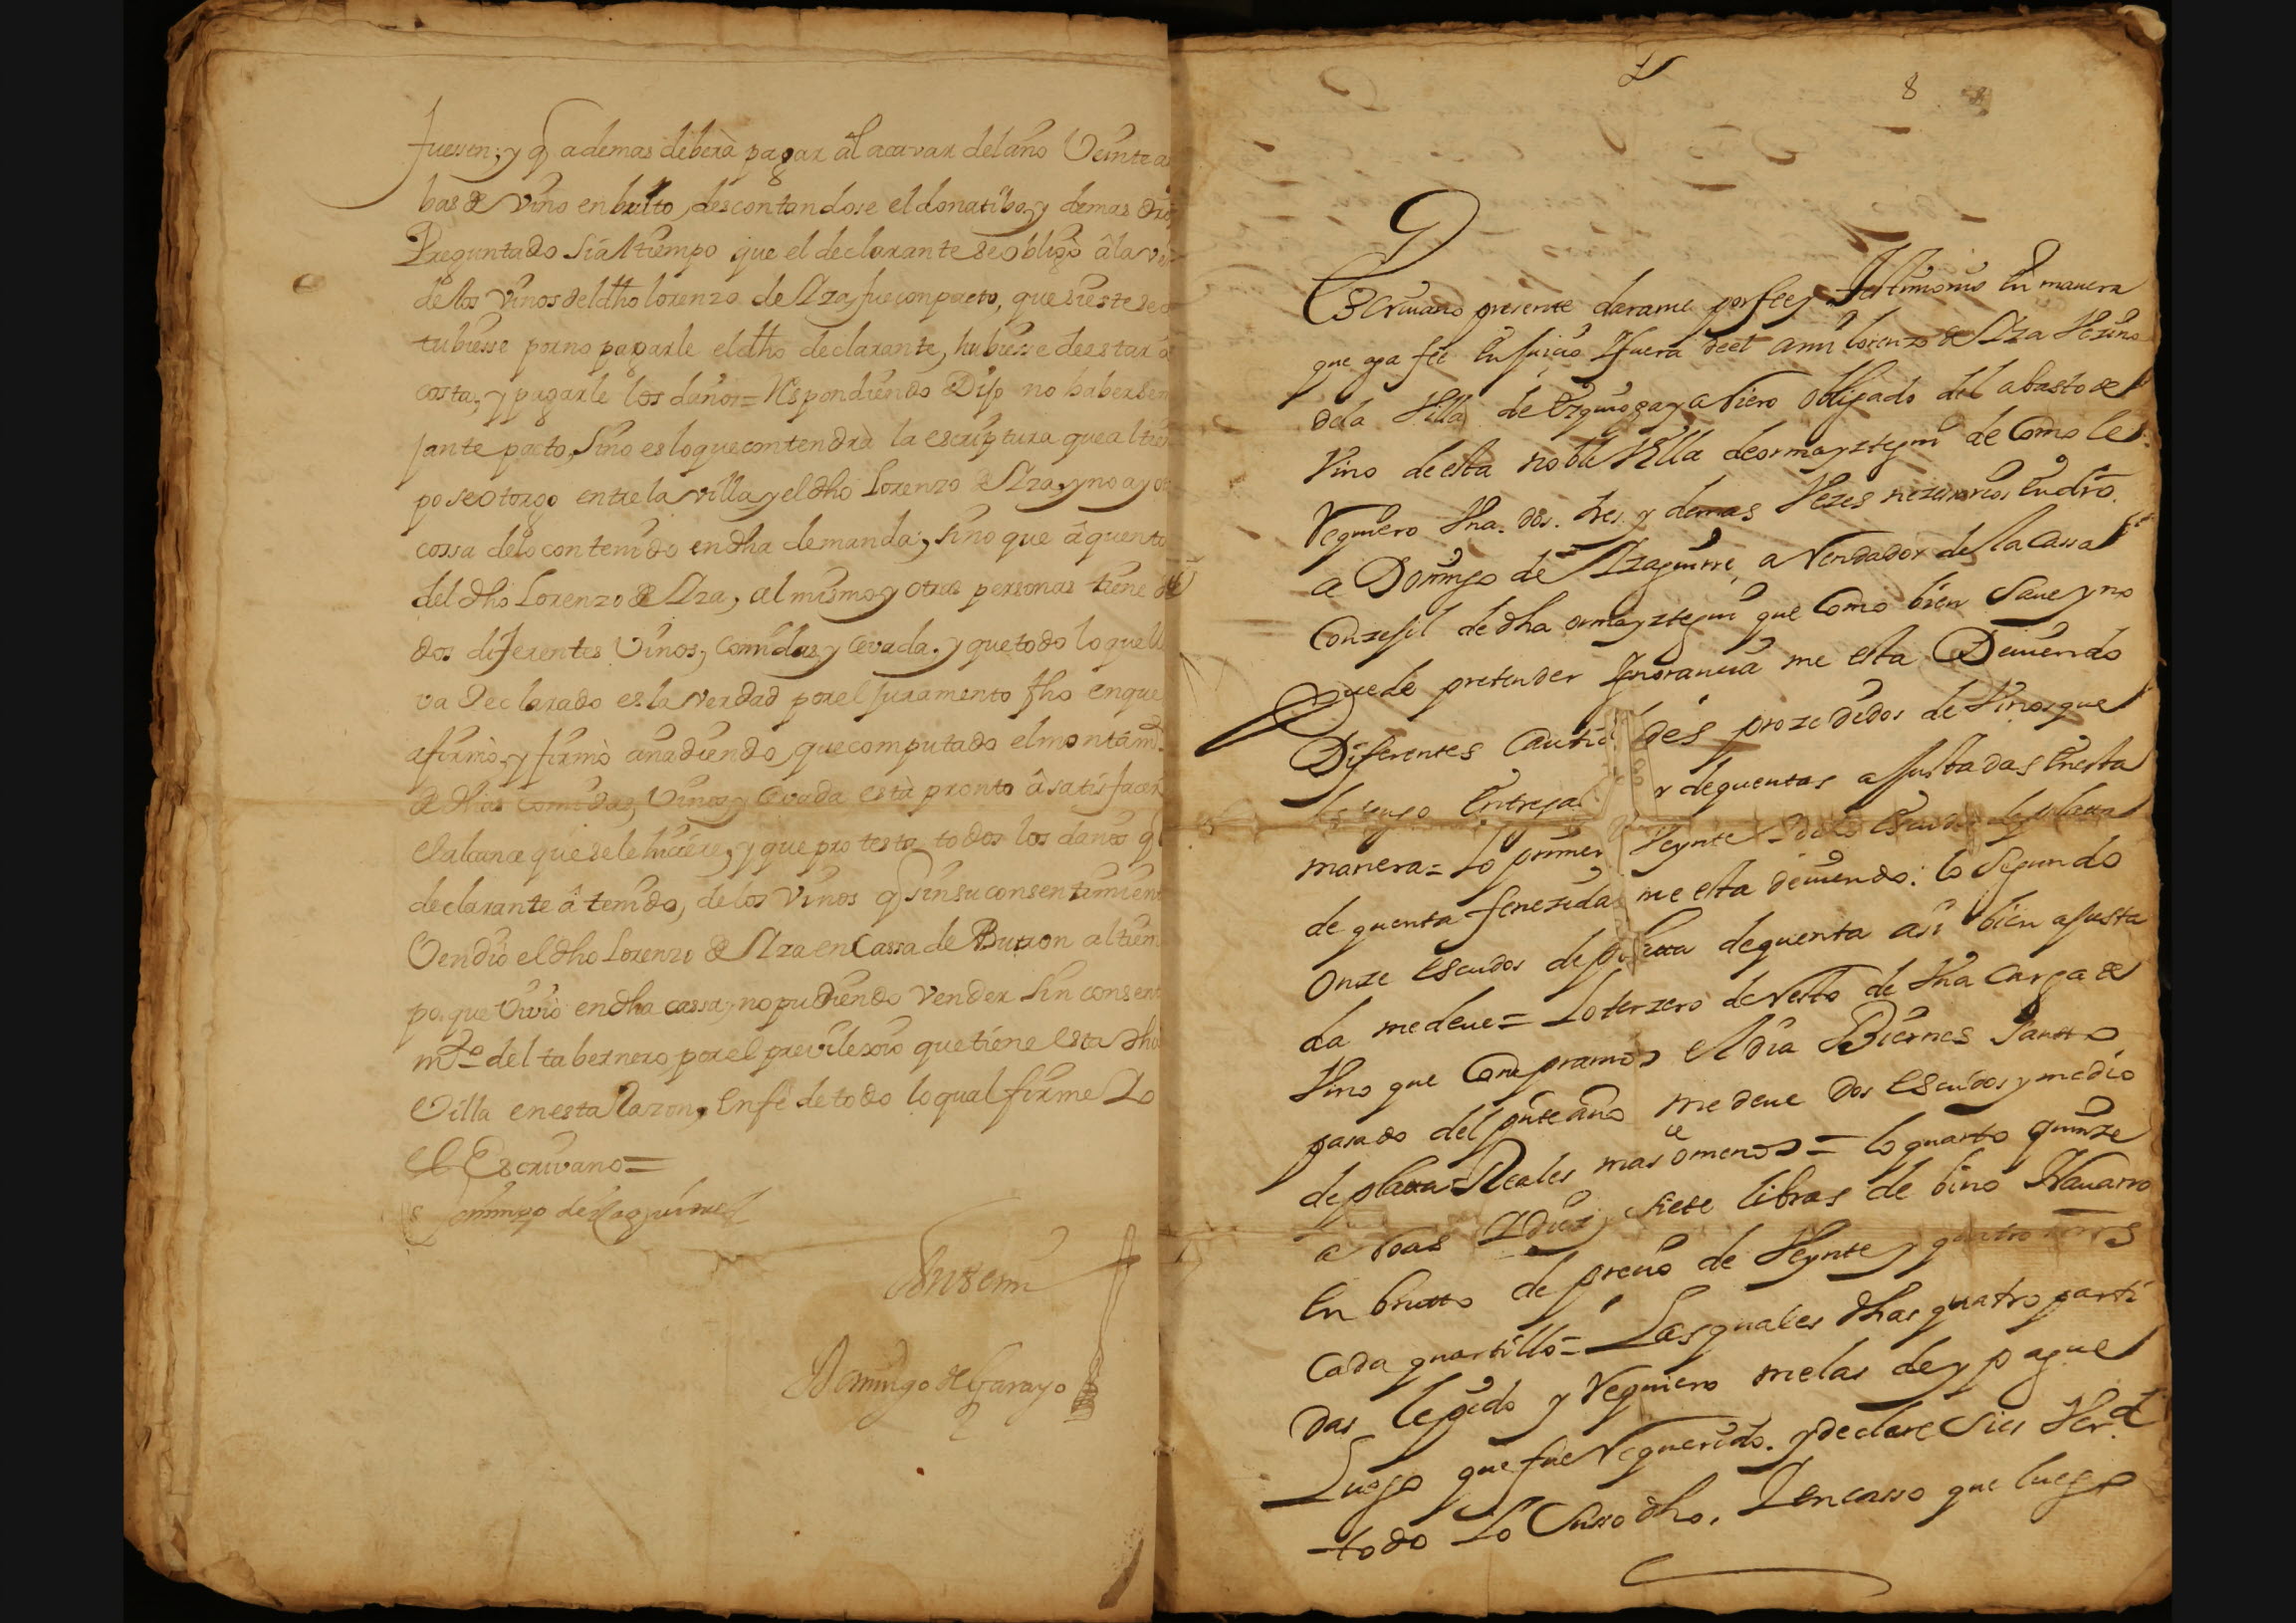 fuessen; y q ademas deberà pagar âl acavar del año Veinte a
bas de Vino en brutto, descontandose el donatibo, y demas dro
Preguntado si al tiempo que el declarante se obligò â la
de los Vinos del dho lorenzo de Aza, fue con pacto, que si este se
tubiesse por no pagarle el dho declarante, hubiesse de estar a
costa, y pagarle los daños= Respondiendo Dijo no haber sem
jante pacto, sino es lo que contendrà la escriptura que al tiem
po se otorgo entre la villa y el dho Lorenzo de Aza, y no ay ot
cossa de lo contenido en dha demanda, sino que â quenta
del dho Lorenzo de Aza, al mismo y otras personas tiene da
dos diferentes Vinos, comidas, y Cevada. y que todo lo que lle
va Declarado es la Verdad por el juramento fho en que
afirmò, y firmò añadiendo, que computado el montamto
de dhas comidas, Vinos y Cevada està pronto â satisfacer
el alcance que se le hiciere, y que protesta todos los daños q el
declarante â tenido, de los Vinos q sin su consentimient
Vendiò el dho Lorenzo de Aza en Cassa de Butron al tiem
po que Viviò en dha cassa, no pudiendo Vender sin consent
mto del tabernero, por el previlexio que tiene esta dha
Villa en esta Razon, En fe de todo lo qual firme Yo
el Escrivano=
Domingo de
Ante mi
Domingo de Garayo
8
Escriuano presente darame por fee y testimonio En manera
que aga fee En juicio Y fuera de el a mi lorenzo de Aza Vezino
de la Villa de Ezquioga y aRiero obligado del abasto de
Vino de esta noble Villa de ormayztegui de Como le
Requiero Vna. dos. tres. y demas Vezes nezesarias En dro.
a Domingo de Yzaguirre aRendador de la Cassa
Conzejil de dha ormayztegui que Como bien saue y no
Puede pretender Ignorancia me esta Deuiendo
Diferentes Cantid des prozedidos de Vinos que
le tengo Entrega r de quentas ajustadas En esta
manera= lo primer Veynte Escudos de platta
de quenta fenezida me esta deuiendo: lo segundo
Onze escudos de platta de quenta assi bien ajusta
da me deue= Lo terzero de Resto de Vna carga de
Vino que Compramos el dia Biernes Santto
pasado del pnte año me deue dos Escudos y medio
de platta Reales mas o menos= lo quarto quinze
aRoas Y diez y siete libras de bino Nauarro
En brutto de precio de Veynte y quatro mrs
Cada quartillo= Las quales dhas quatro parti
das le pido y Requiero me las de y pague
Luego que fue Requerido. y declare si es Verd
todo Lo Susso dho. Y en casso que luego